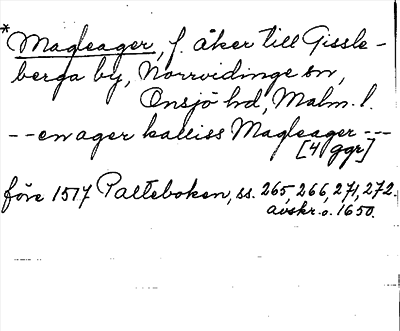 * Magleager, f. åker till Gissle-
berga by, Norrvidinge sn,
Onsjö hd, Malm. l.
-- en ager kalliss Magleager ---
[4 ggr]
före 1517 Palteboken, ss. 265, 266, 271, 272.
avskr. o. 1650.